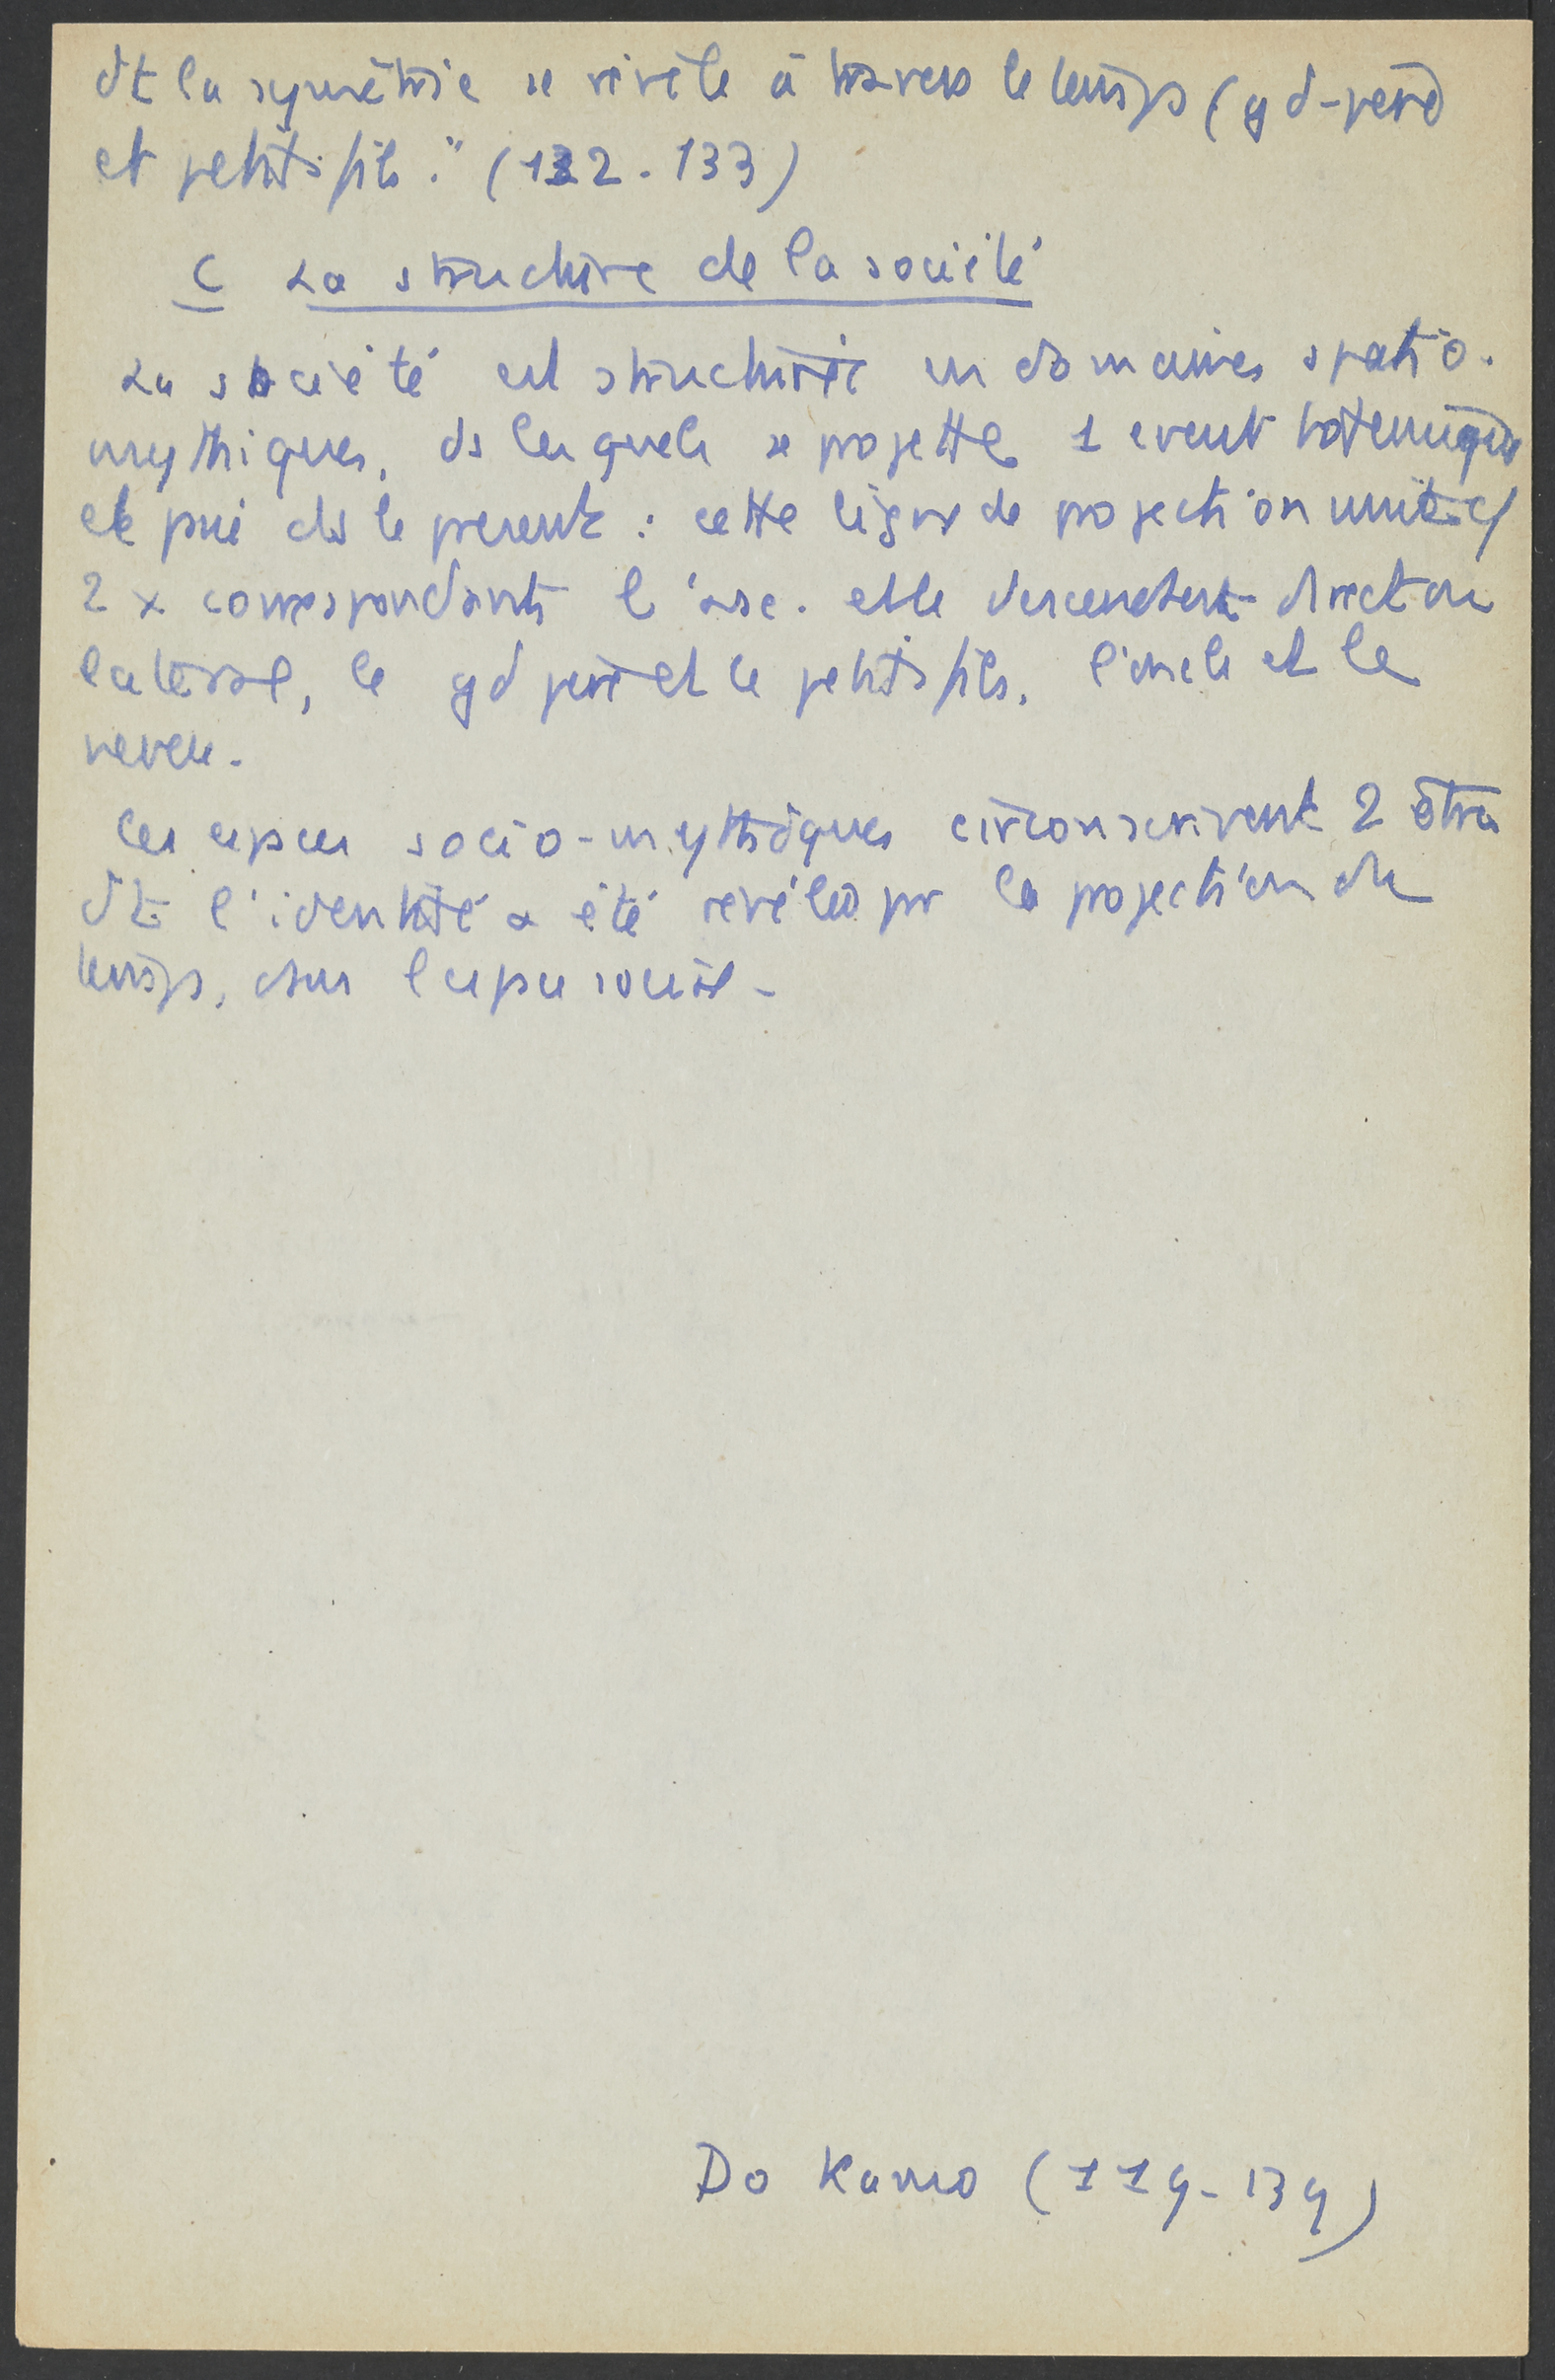 dt la symétrie se révèle à travers le temps (gd-père
et petits fils." (132-133)
C La structure de la société
La société est structurée en domaines spatio-
mythiques, ds lesquels se projette 1 event totémique
et puis ds le present : cette ligne de projection unit
2 x correspondants l'asc. et le descendant direct ou
latéral, le gd père et le petits fils, l'oncle et le
neveu.
Ces espaces socio-mythiques circonscrivent 2 êtres
dt l'identité a été révélée par la projection du
temps, dans l'espace social -
Do Kamo (119-139)